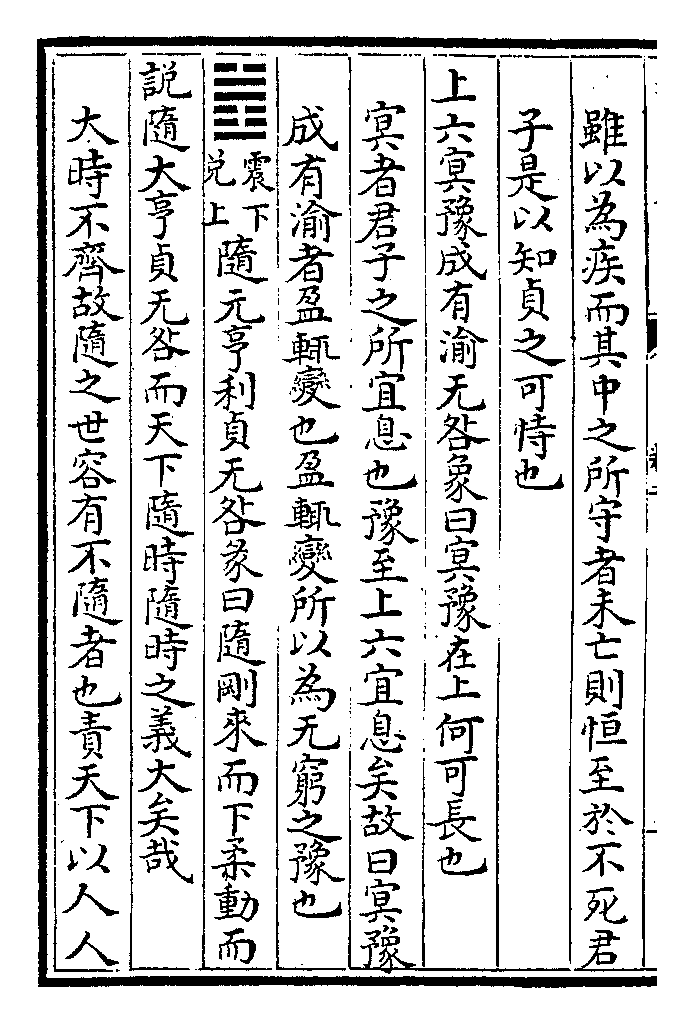 雖以為疾而其中之所守者未亡則恒至於不死君
子是以知貞之可恃也
上六冥豫成有渝无咎象曰冥豫在上何可長也
冥者君子之所宜息也豫至上六宜息矣故曰冥豫
成有渝者盈輒變也盈輒變所以為无窮之豫也
䷐震下兌上隨元亨利貞无咎彖曰隨剛來而下柔動而
説隨大亨貞无咎而天下隨時隨時之義大矣哉
大時不齊故隨之世容有不隨者也責天下以人人